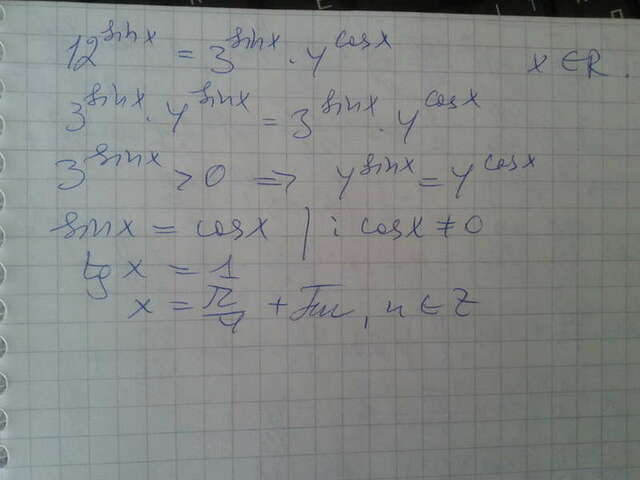 12^{sin x} = 3^{sin x} · 4^{cos x} x ∈ R.
3^{sin x} · 4^{sin x} = 3^{sin x} · 4^{cos x}
3^{sin x} > 0 ⇒ 4^{sin x} = 4^{cos x}
sin x = cos x | : cos x ≠ 0
tg x = 1
x = π/4 + πn, n ∈ Z